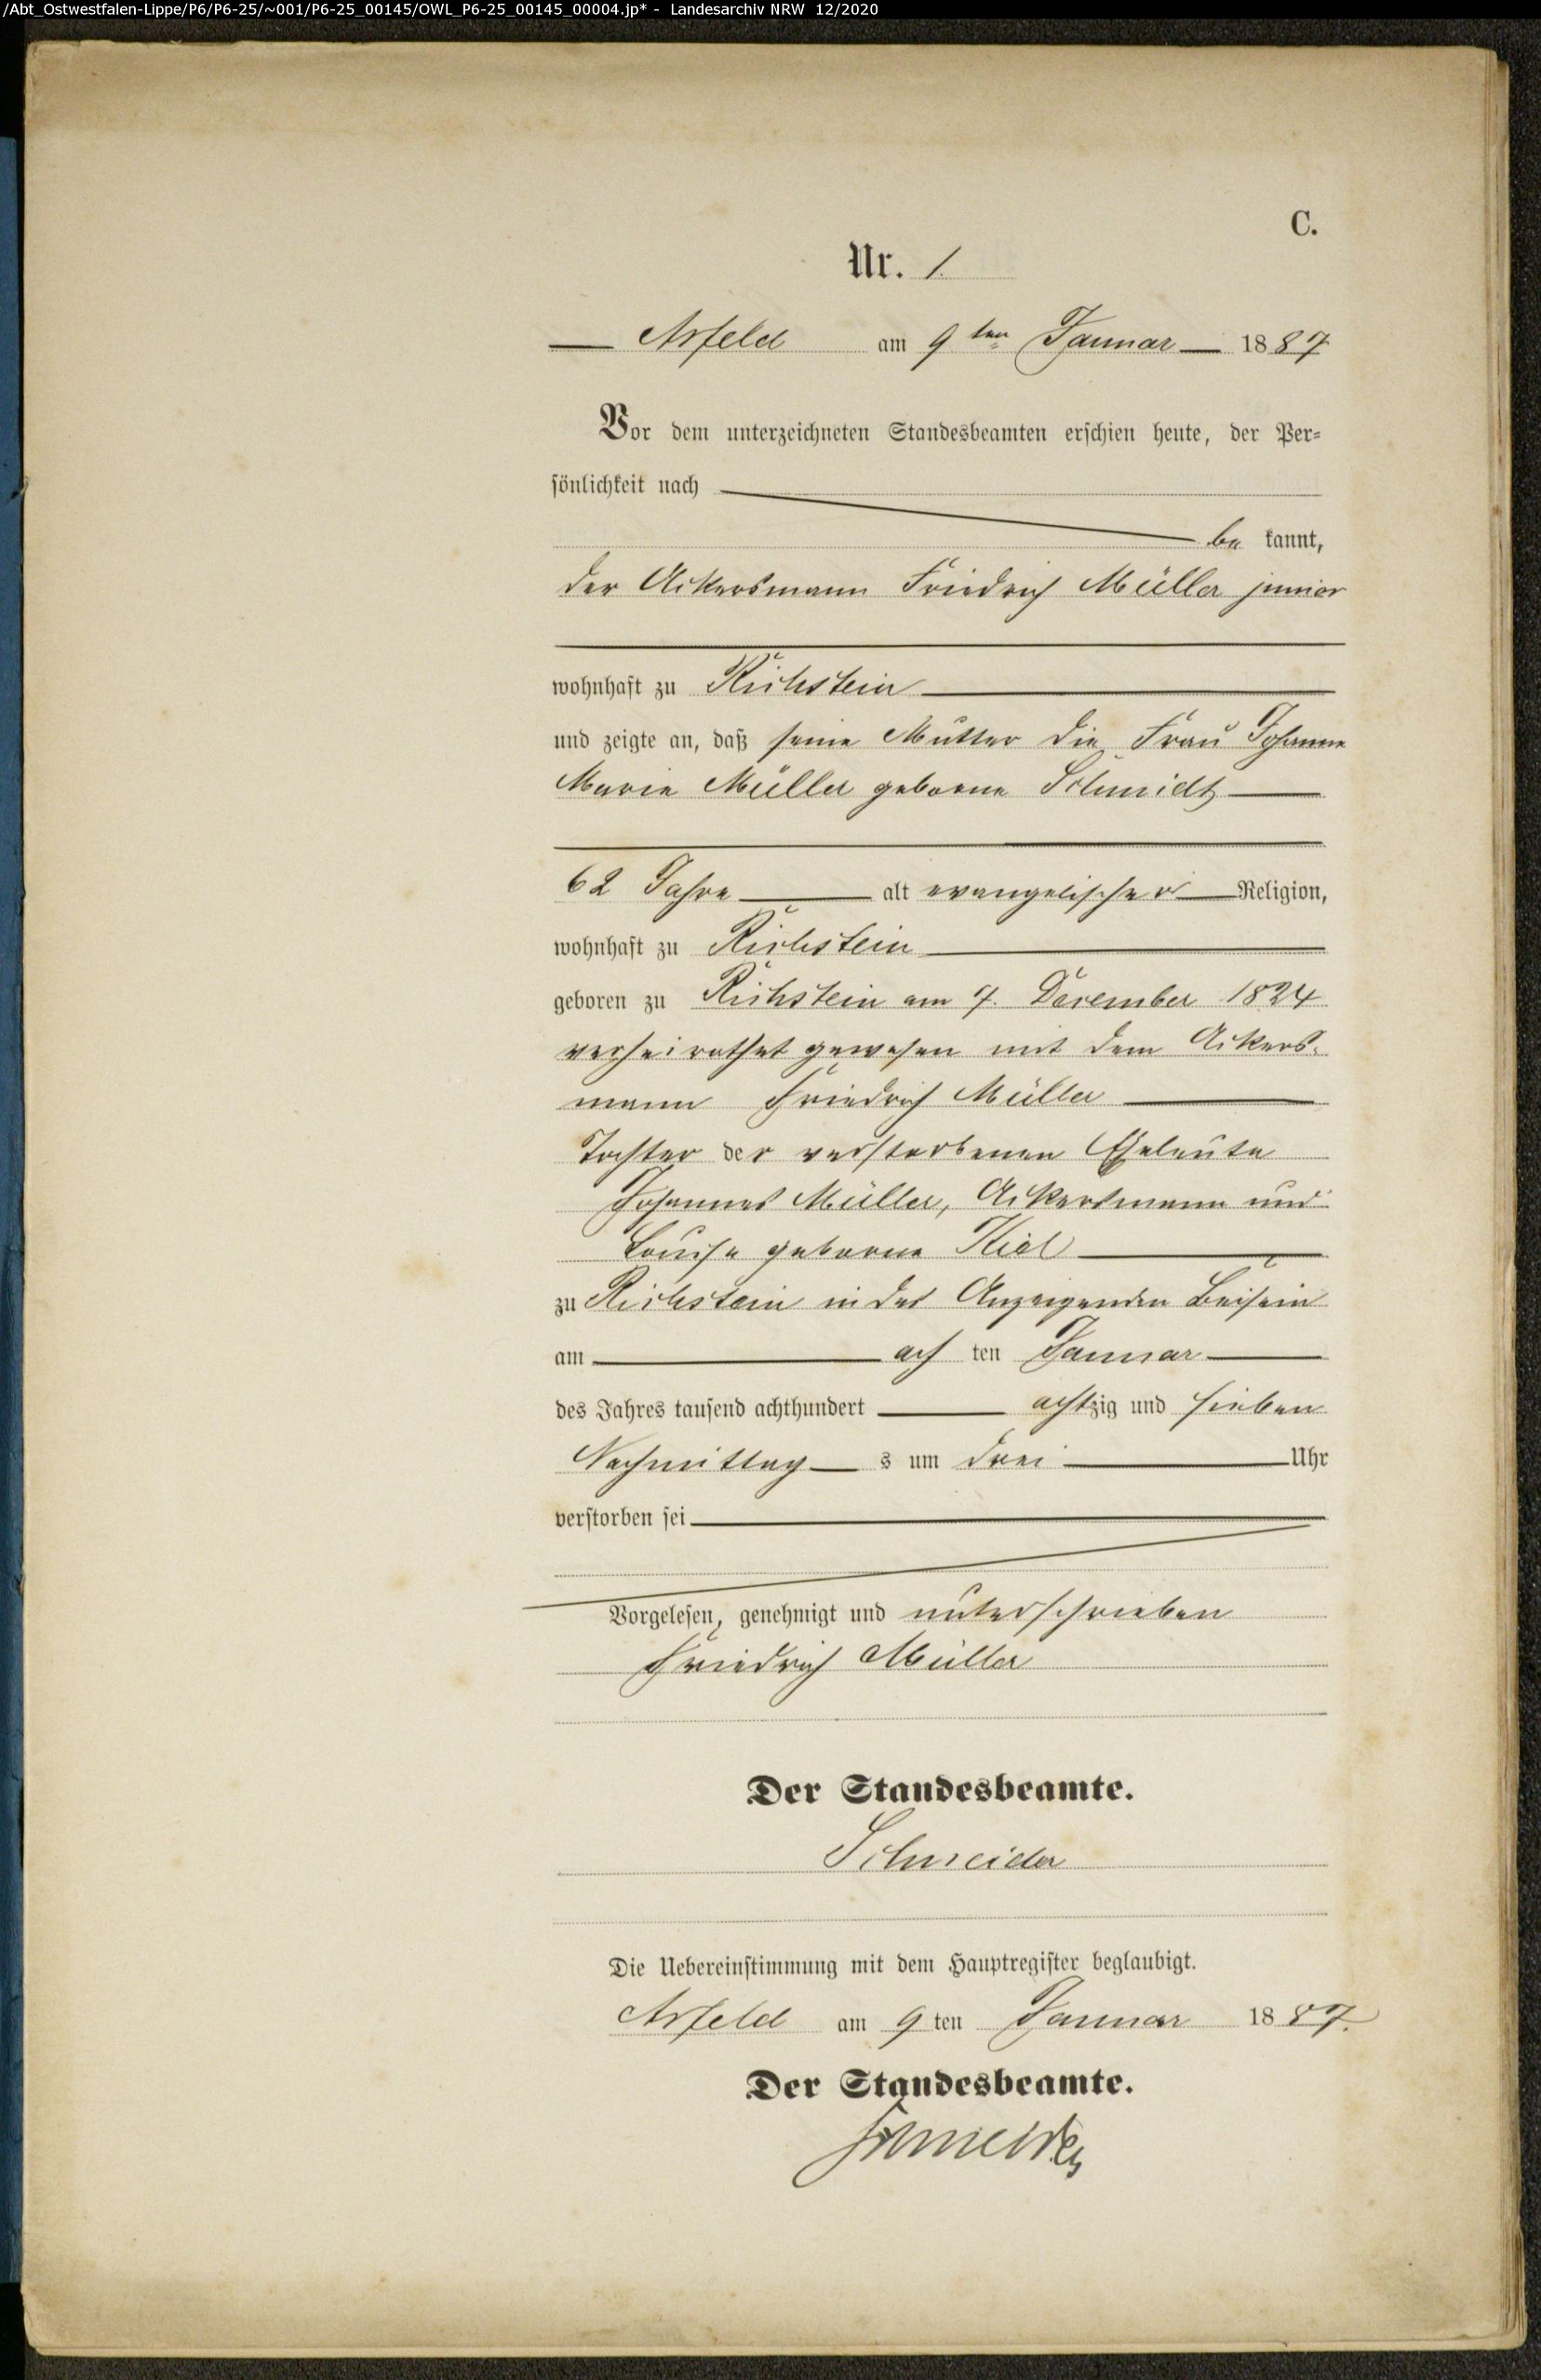 /Abt_Ostwestfalen-Lippe/P6/P6-25/~001/P6-25_00145/OWL_P6-25_00145_00004.jp* - Landesarchiv NRW 12/2020
C.
Nr. 1.
Arfeld am 9ten Januar 1887
Vor dem unterzeichneten Standesbeamten erschien heute, der Per=
sönlichkeit nach
be kannt,
der Ackersmann Friedrich Müller junior
wohnhaft zu Richstein
und zeigte an, daß seine Mutter die Frau Johanne
Marie Müller geborne Schmidt
62 Jahre alt evangelischer Religion,
wohnhaft zu Richstein
geboren zu Richstein am 7. Dezember 1824
verheirathet gewesen mit dem Ackers-
mann Friedrich Müller
Tochter der verstorbenen Eheleute
Johannes Müller, Ackersmann und
Louise geborne Kiel
zu Richstein in des Anzeigenden Beisein
am ach ten Januar
des Jahres tausend achthundert achtzig und sieben
Nachmittag s um drei Uhr
verstorben sei
Vorgelesen, genehmigt und unterschrieben
Friedrich Müller
Der Standesbeamte.
Schneider
Die Uebereinstimmung mit dem Hauptregister beglaubigt.
Arfeld am 9 ten Januar 1887.
Der Standesbeamte.
Schneider